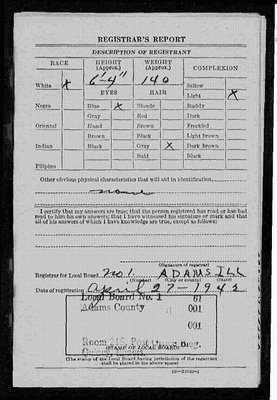 REGISTRAR'S REPORT
DESCRIPTION OF REGISTRANT
RACE HEIGHT (Approx.) WEIGHT (Approx.) COMPLEXION
White X 6'4" 140 Sallow
EYES HAIR Light X
Negro Blue X Blonde Ruddy
Gray Red Dark
Oriental Hazel Brown Freckled
Brown Black Light brown
Indian Black Gray X Dark brown
Bald Black
Filipino
Other obvious physical characteristics that will aid in identification
none
I certify that my answers are true; that the person registered has read or has had
read to him his own answers; that I have witnessed his signature or mark and that
all of his answers of which I have knowledge are true, except as follows:
(Signature of registrar)
Registrar for Local Board No. 1 ADAMS ILL
(Number) (City or county) (State)
Date of registration April 27 - 1942
Local Board No. 1 61
Adams County 001
001
Room 215, Post
(STAMP OF LOCAL BOARD)
(The stamp of the Local Board having jurisdiction of the registrant
shall be placed in the above space)